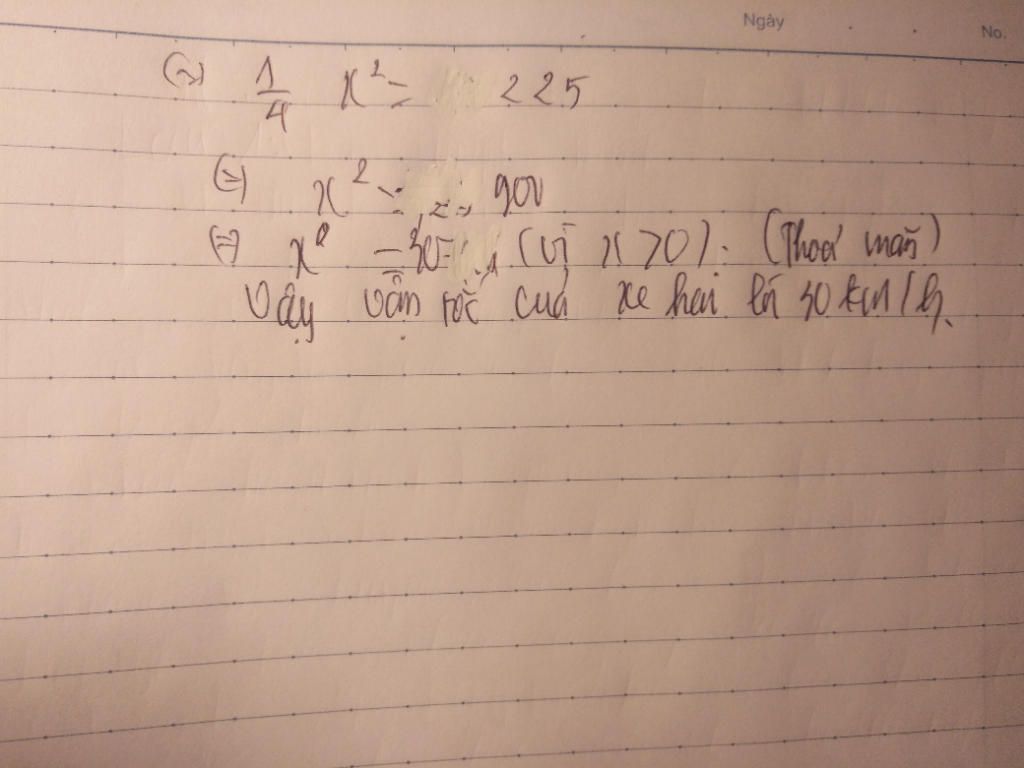 Ngày
No.
(=) 1/4 x² = 225
(=) x² = 900
(=) x = 30 (vì x > 0). (Thoả mãn)
Vậy vận tốc của xe hai là 30 km/h.